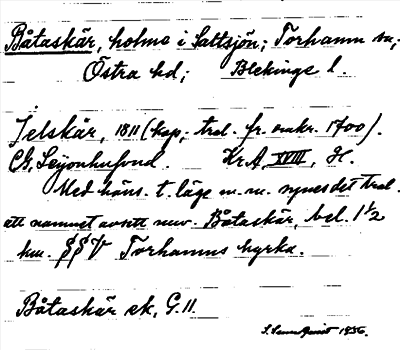 Båtaskär, holme i Saltsjön; Torhamn sn;
Östra hd; Blekinge l.
Jelskär, 1811 (kop; trol. fr. omkr. 1700).
Cg. Leijonhufvud. Kr A, XVIII, H.
Med häns. t. läge m. m. synes det trol.
att namnet avsett nuv. Båtaskär, bel. 1 1/2
km. SSV Torhamns kyrka.
Båtaskär ek, G. 11.
1936.